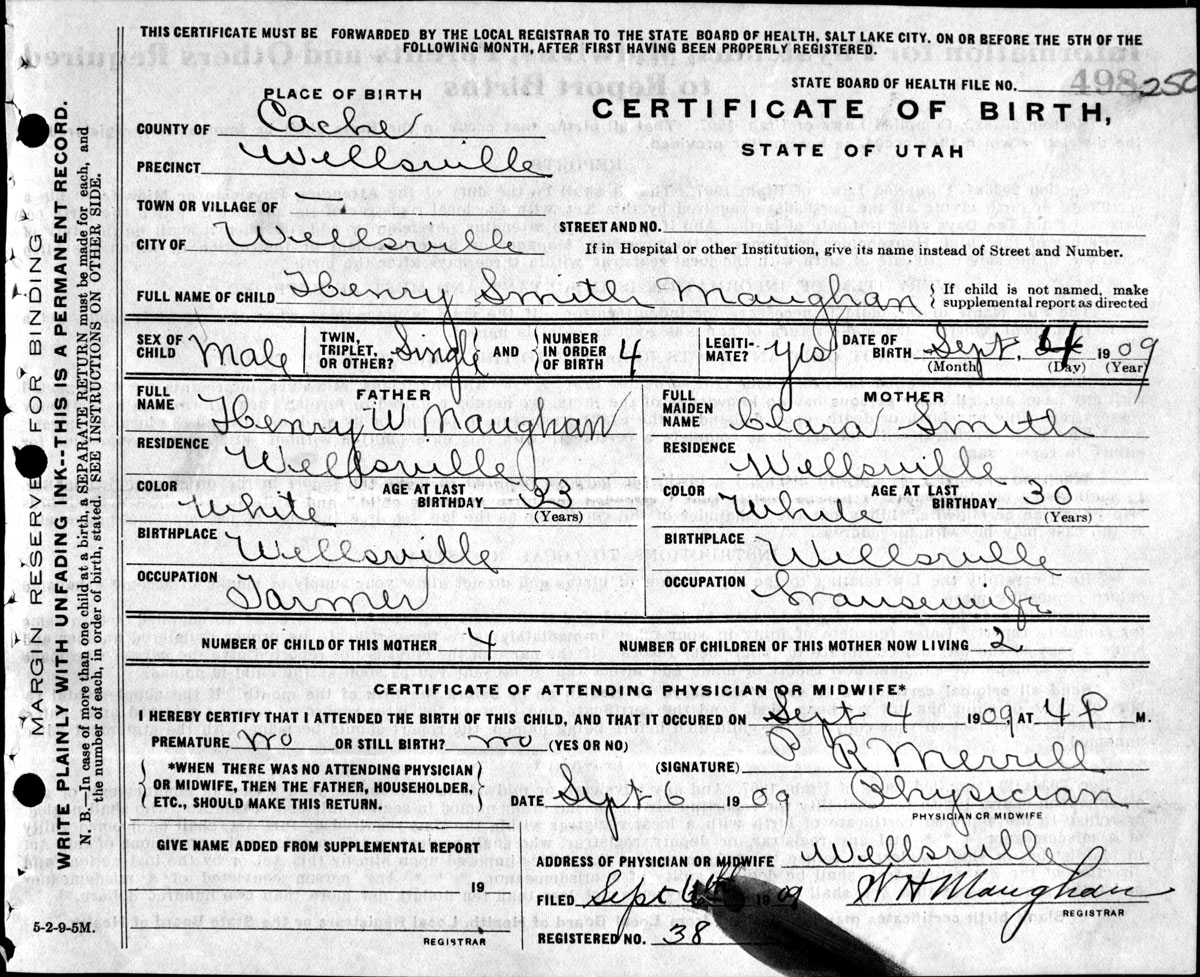 THIS CERTIFICATE MUST BE FORWARDED BY THE LOCAL REGISTRAR TO THE STATE BOARD OF HEALTH, SALT LAKE CITY. ON OR BEFORE THE 5TH OF THE
FOLLOWING MONTH, AFTER FIRST HAVING BEEN PROPERLY REGISTERED.
STATE BOARD OF HEALTH FILE NO. 498 250
PLACE OF BIRTH
CERTIFICATE OF BIRTH,
STATE OF UTAH
COUNTY OF Cache
PRECINCT Wellsville
TOWN OR VILLAGE OF —
STREET AND NO.
CITY OF Wellsville
If in Hospital or other Institution, give its name instead of Street and Number.
FULL NAME OF CHILD Henry Smith Maughan { If child is not named, make
supplemental report as directed
SEX OF CHILD Male TWIN, TRIPLET, OR OTHER? Single AND NUMBER IN ORDER OF BIRTH 4 LEGITI- MATE? yes DATE OF BIRTH Sept. 4 1909
(Month) (Day) (Year)
FATHER
FULL NAME Henry W Maughan
RESIDENCE Wellsville
COLOR White AGE AT LAST BIRTHDAY 33
(Years)
BIRTHPLACE Wellsville
OCCUPATION Farmer
MOTHER
FULL MAIDEN NAME Clara Smith
RESIDENCE Wellsville
COLOR White AGE AT LAST BIRTHDAY 30
(Years)
BIRTHPLACE Wellsville
OCCUPATION Housewife
NUMBER OF CHILD OF THIS MOTHER 4 NUMBER OF CHILDREN OF THIS MOTHER NOW LIVING 2
CERTIFICATE OF ATTENDING PHYSICIAN OR MIDWIFE*
I HEREBY CERTIFY THAT I ATTENDED THE BIRTH OF THIS CHILD, AND THAT IT OCCURED ON Sept 4 1909 AT 4 P M.
PREMATURE no OR STILL BIRTH? no (YES OR NO)
*WHEN THERE WAS NO ATTENDING PHYSICIAN
OR MIDWIFE, THEN THE FATHER, HOUSEHOLDER,
ETC., SHOULD MAKE THIS RETURN.
(SIGNATURE) P R Merrill
DATE Sept 6 1909 Physician
PHYSICIAN OR MIDWIFE
GIVE NAME ADDED FROM SUPPLEMENTAL REPORT
19
REGISTRAR
ADDRESS OF PHYSICIAN OR MIDWIFE Wellsville
FILED Sept 1909 W H Maughan
REGISTRAR
REGISTERED NO. 38
5-2-9-5M.
MARGIN RESERVED FOR BINDING
WRITE PLAINLY WITH UNFADING INK--THIS IS A PERMANENT RECORD.
N. B.—In case of more than one child at a birth, a SEPARATE RETURN must be made for each, and
the number of each, in order of birth, stated. SEE INSTRUCTIONS ON OTHER SIDE.